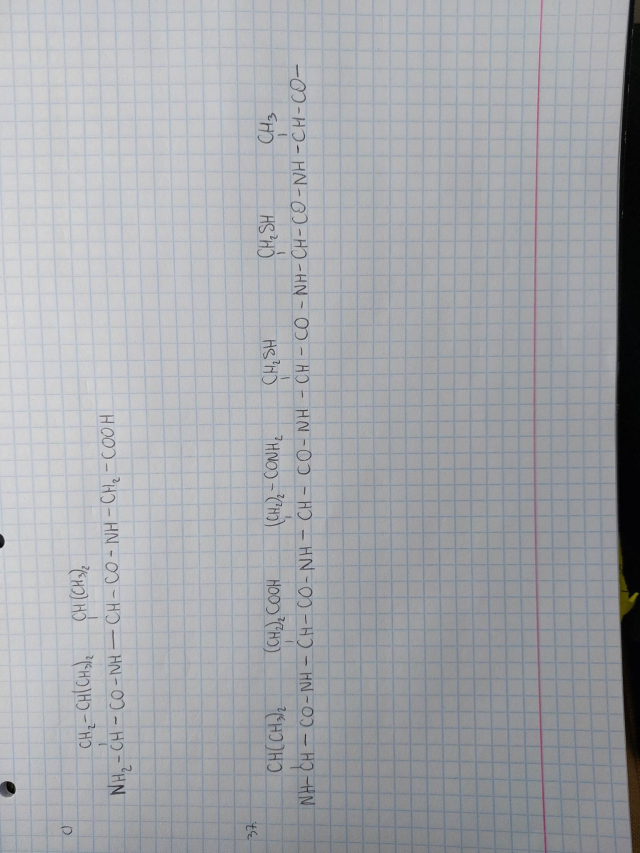 0
CH₂-CH(CH₃)₂ CH(CH₃)₂
NH₂-CH-CO-NH-CH-CO-NH-CH₂-COOH
37.
CH(CH₃)₂ (CH₂)₂COOH (CH₂)₂-CONH₂ CH₂SH CH₂SH CH₃
NH-CH-CO-NH-CH-CO-NH-CH-CO-NH-CH-CO-NH-CH-CO-NH-CH-CO-